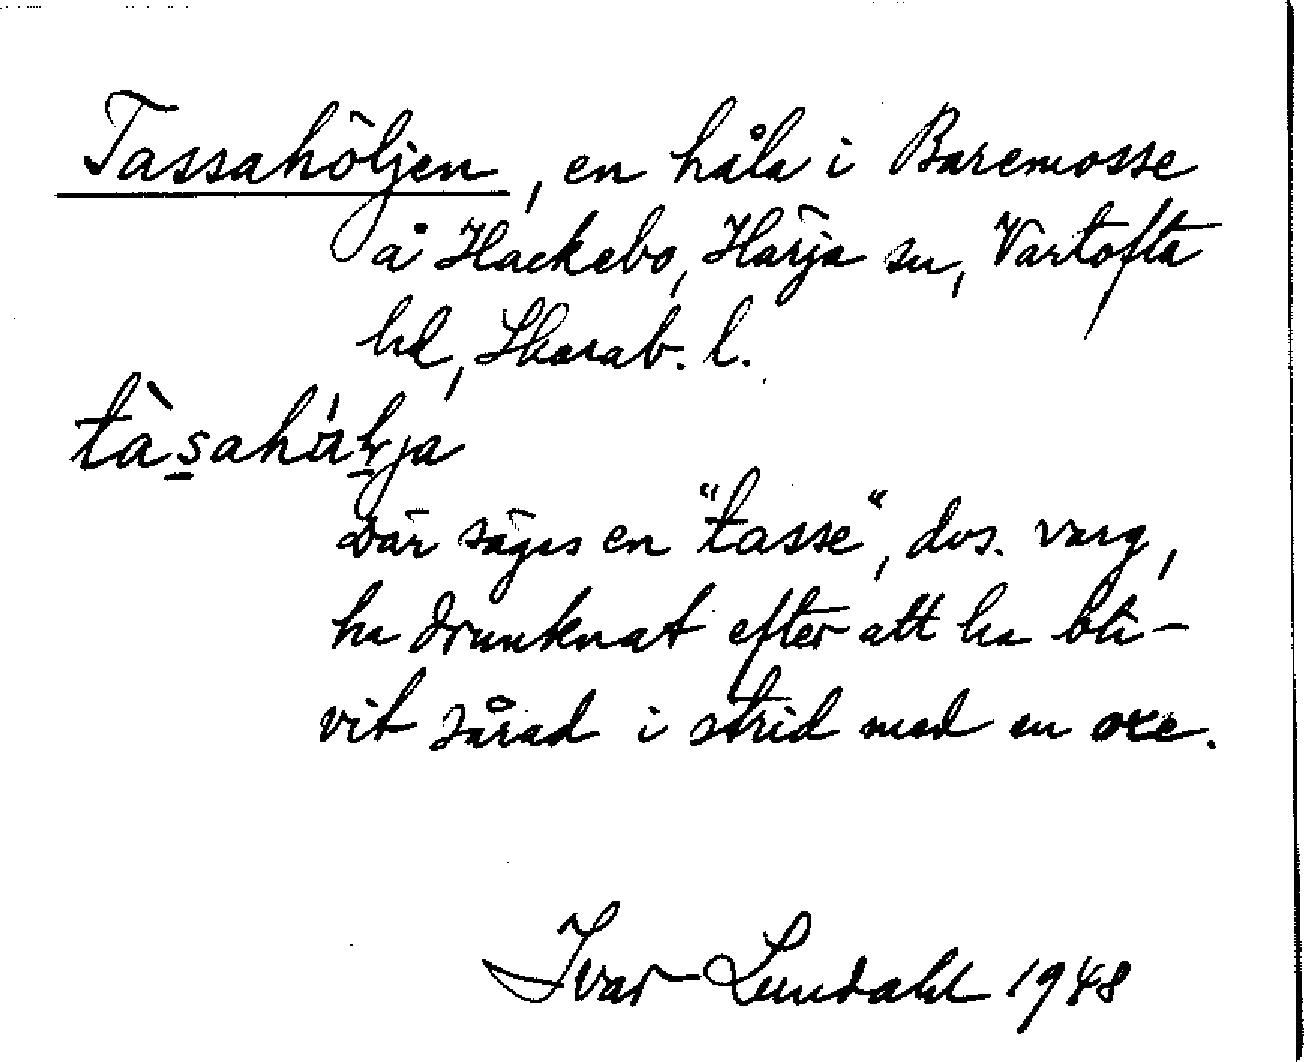 Tassahöljen, en håla i Baremosse
å Hackebo, Härja sn, Vartofta
hd, Skarab. l.
där säges en "tasse", dvs. varg,
ha drunknat efter att ha bli-
vit sårad i strid med en oxe.
Ivar Lundahl 1948